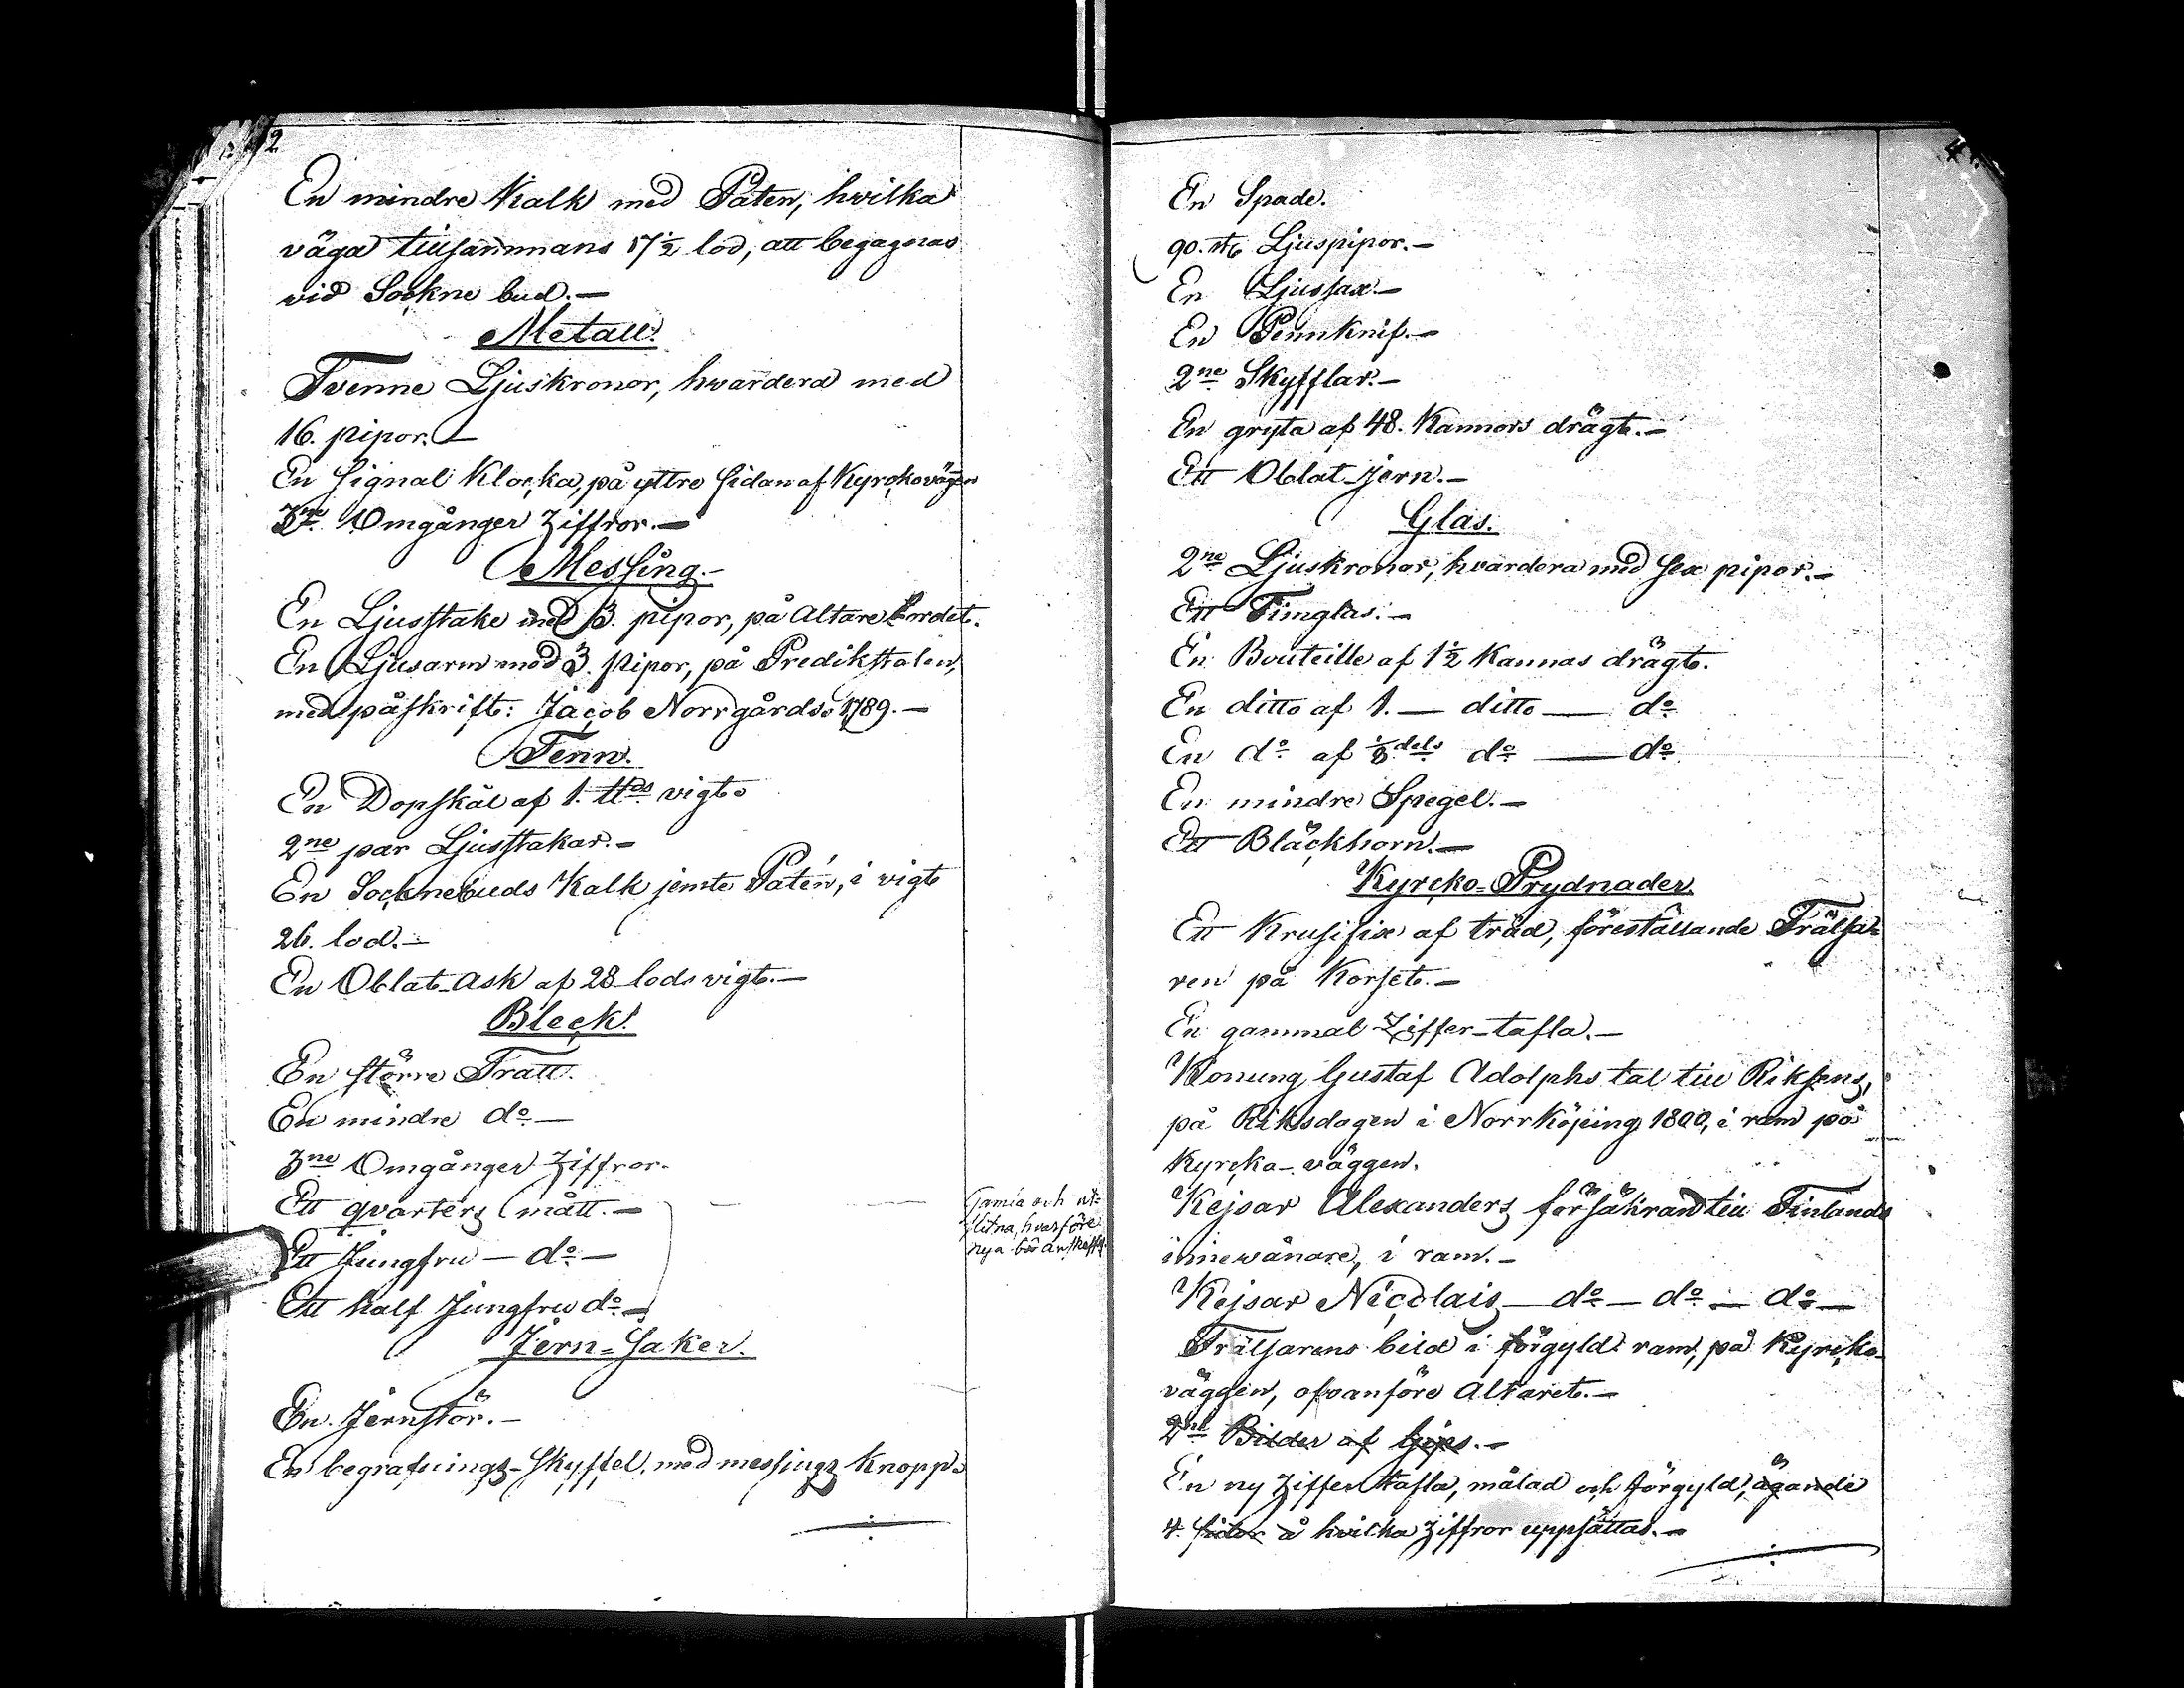 2
En mindre Kalk med Paten, hvilka
väga tillsammans 17 1/2 lod, att begagnas
vid Sockne bud.—
Metall.
Tvenne Ljuskronor, hvardera med
16. pipor.—
En Signal Klocka, på yttre sidan af Kyrckoväggen
3ne Omgånger Ziffror.—
Messing.—
En Ljusstake med 3. pipor, på Altare bordet.
En Ljusarm med 3. pipor, på Predikstolen,
med påskrift: Jacob Norrgårds 1789.—
Tenn.
En Dopskål af 1. ℔ds vigt.
2ne par Ljusstakar.—
En Socknebuds Kalk jemte Patén, i vigt
26. lod.—
En Oblat-Ask af 28 lods vigt.—
Bleck.
En större Tratt.
En mindre do.—
3ne Omgånger Ziffror.
Ett qvarters mått.—
Ett Jungfru — do.—
Ett half Jungfru do.—
Gamla och ut-
slitna, hvarföre
nya bör anskaffs.
Jern-Saker.
En Jernstör.—
En begrafnings-Skyffel, med messings Knopp.
En Spade.
90. st. Ljuspipor.—
En Ljussax.—
En Pennknif.—
2ne Skyfflar.—
En gryta af 48. Kannors drägt.—
Ett Oblat-jern.—
Glas.
2ne Ljuskronor, hvardera med sex pipor.—
Ett Timglas.—
En Bouteille af 1 1/2 Kannas drägt.
En ditto af 1.— ditto — do.
En do. af 1/8 dels do. — do.
En mindre Spegel.—
Ett Bläckhorn.—
Kyrcko-Prydnader.
Ett Krusifix af träd, föreställande Frälsa-
ren på Korset.—
En gammal Ziffer-tafla.—
Konung Gustaf Adolphs tal till Riksens,
på Riksdagen i Norrköping 1800, i ram på
Kyrcka-väggen.
Kejsar Alexanders försäkran till Finlands
innewånare, i ram.—
Kejsar Nicolais — do.— do.— do.—
Frälsarens bild i förgyld ram, på Kyrcko-
väggen, ofvanföre Altaret.—
2ne Bilder af Gips.—
En ny Ziffer tafla, målad och förgyld, ägande
4. sidor å hvilka Ziffror uppsättas.—